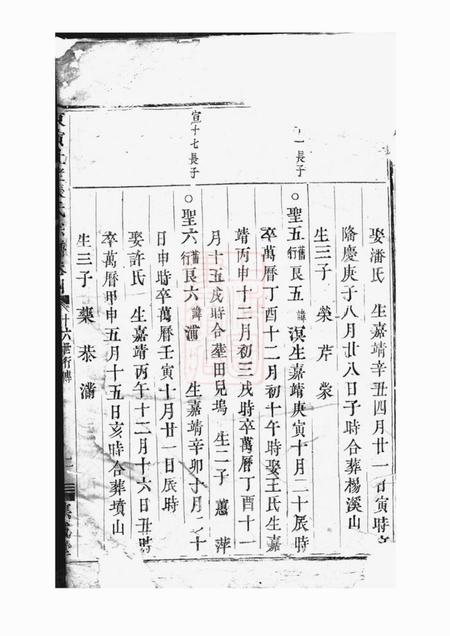 娶潘氏 生嘉靖辛丑四月廿一日寅時
隆慶庚子八月廿八日子時合葬楊溪山
生三子 榮 芹 棠
一長子
○聖五舊行良五 諱溟生嘉靖庚寅十月二十辰時
卒萬曆丁酉十二月初十午時娶王氏生嘉
靖丙申十二月初三戌時卒萬曆丁酉十一
月十五戌時合塟田兒塢 生二子 蕙 萍
宣十七長子
○聖六舊行良六 諱浦 生嘉靖辛卯十月二十
日申時卒萬曆壬寅十月廿一日辰時
娶許氏 生嘉靖丙午十二月十六日丑時
卒萬曆甲申五月十五日亥時合葬墳山
生三子 蘃 菾 藩